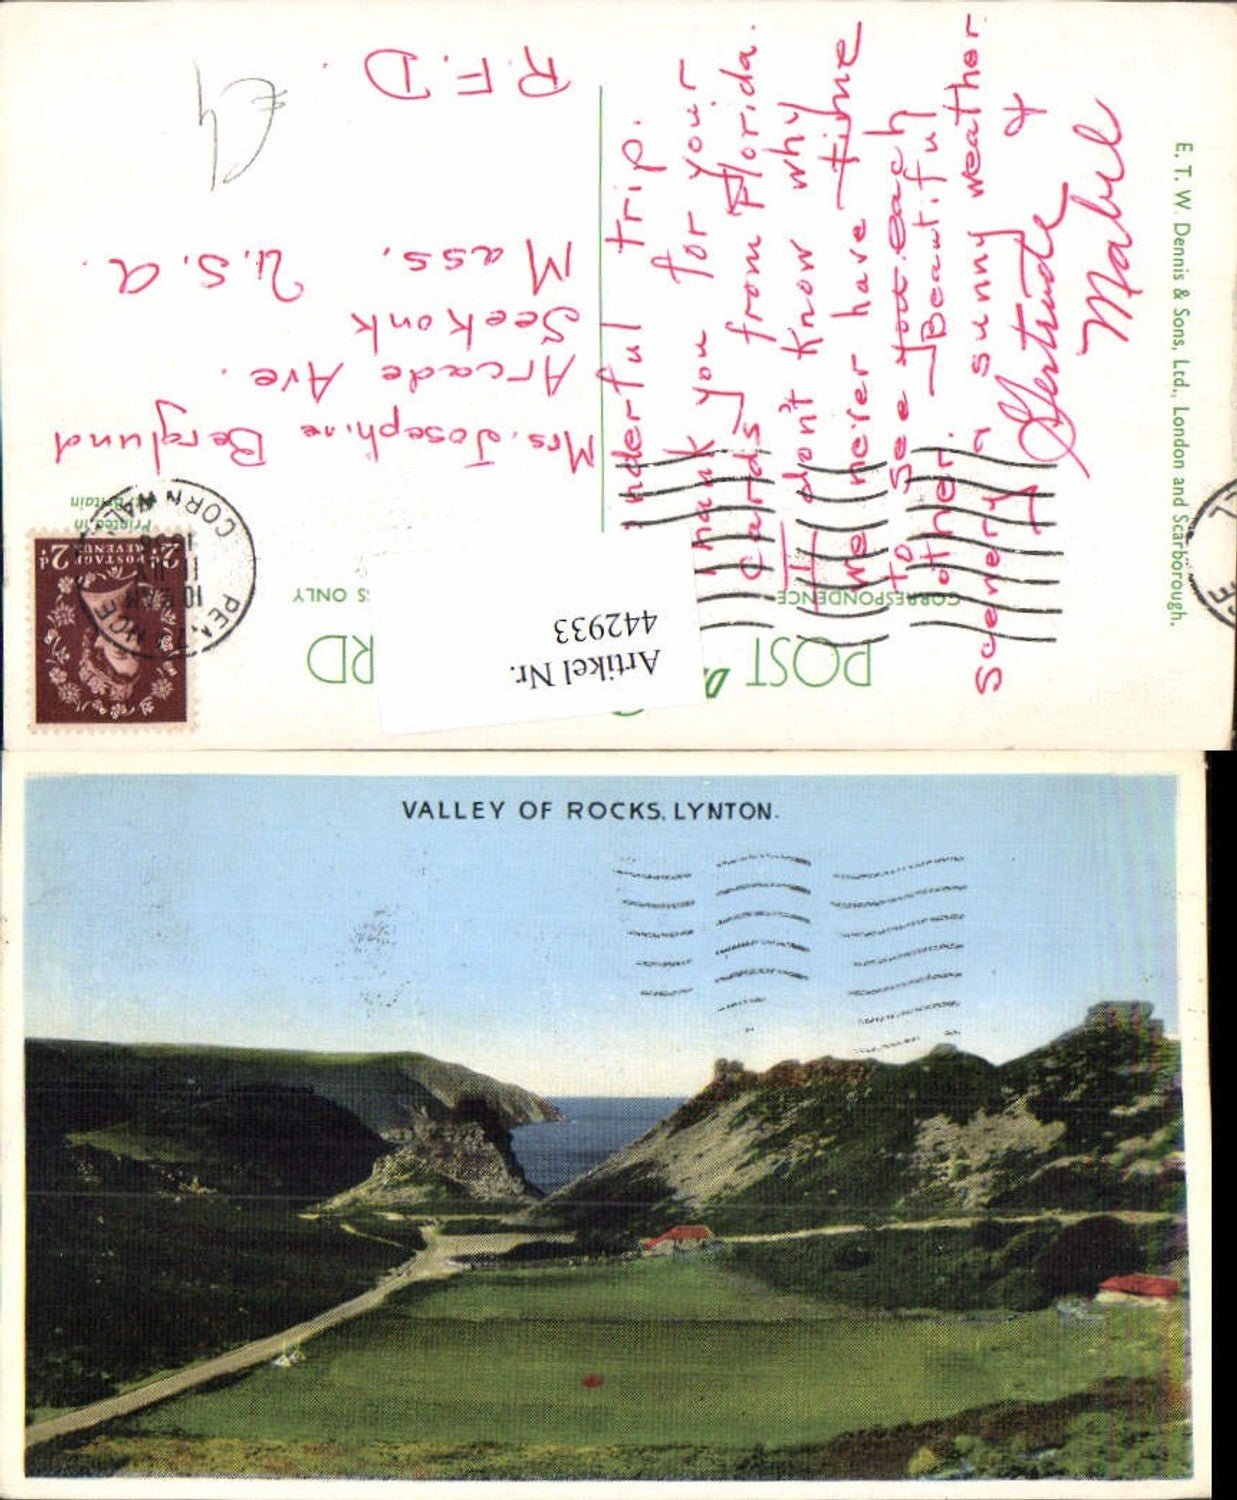 POST
RD
CORRESPONDENCE
S ONLY
Artikel Nr.
442933
PENZANCE
CORNWALL
10 AM
POSTAGE
REVENUE
2D
2D
Printed in
Britain
Mrs. Josephine Berglund
Arcade Ave.
Seekonk
Mass.
U.S.A.
R.F.D.
£4
nderful trip.
Thank you for your
cards from Florida.
I don't know why
we never have time
to see each
other. Beautiful
scenery & sunny weather
Gertrude &
Mabel
E. T. W. Dennis & Sons, Ltd., London and Scarborough.
VALLEY OF ROCKS, LYNTON.